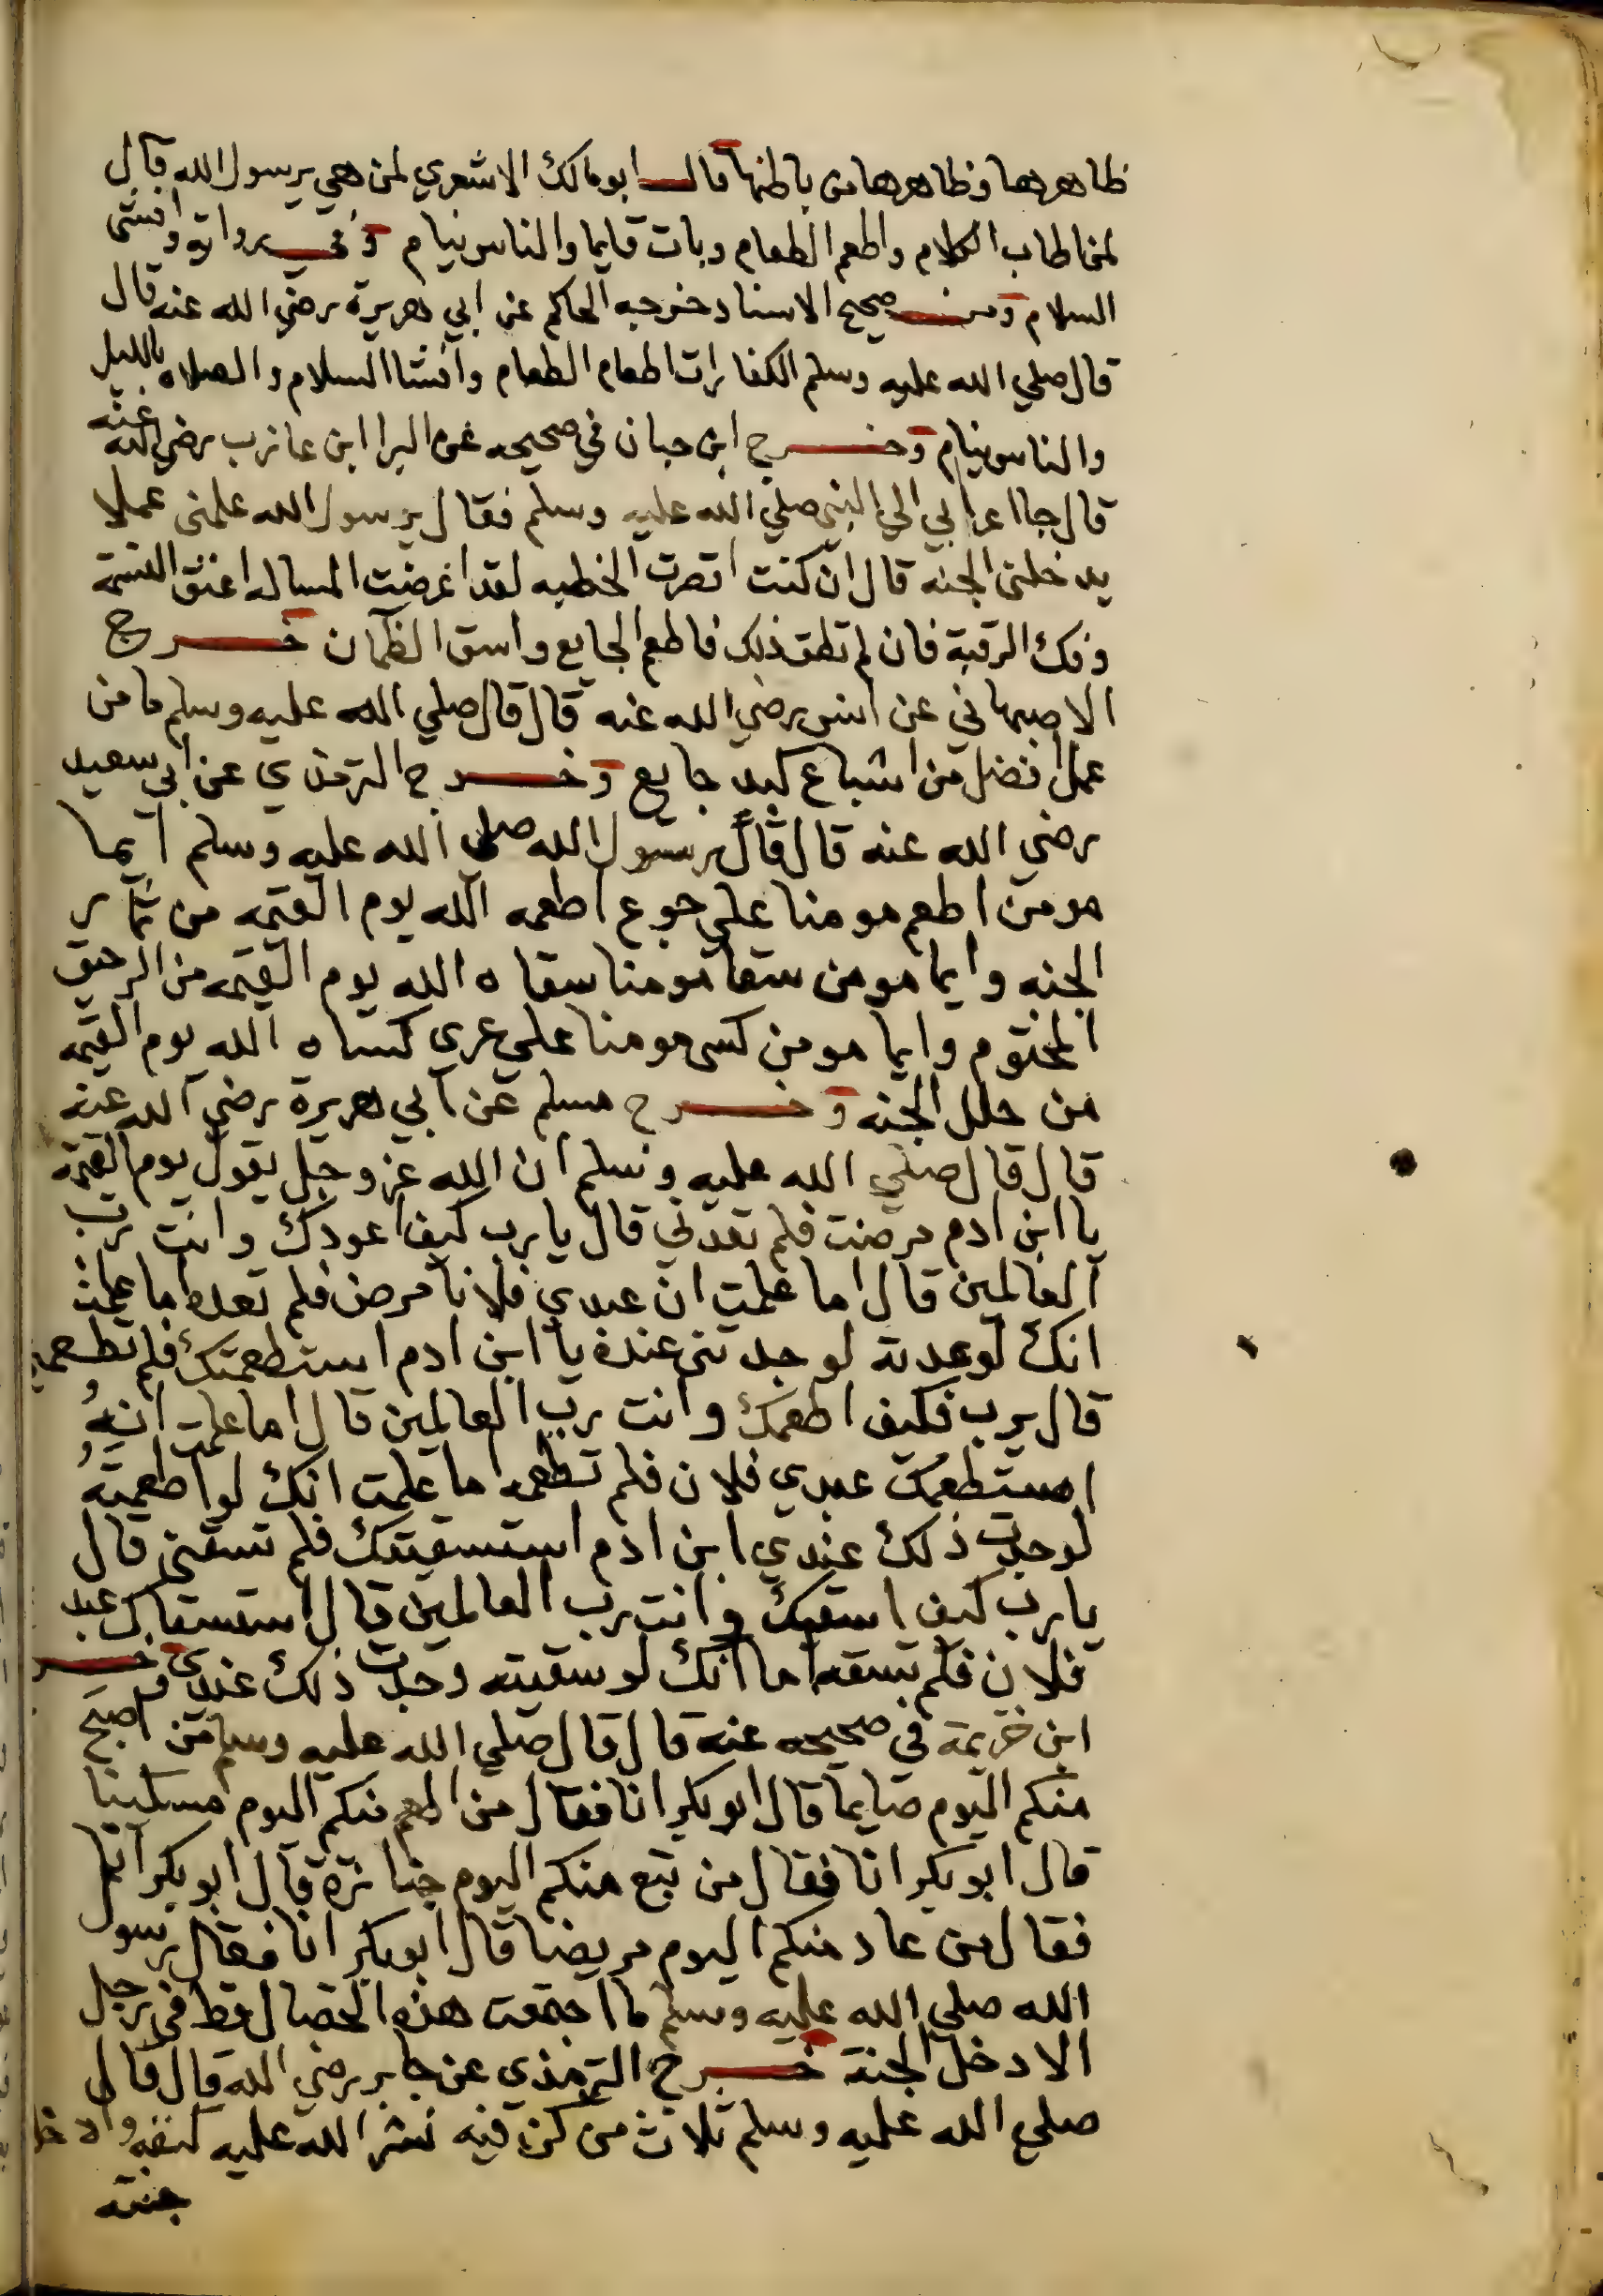 ظاهرها وظاهرها من باطنها قال ابو مالك الاشعري لمن هي يرسول الله قال
لمن اطاب الكلام واطعم الطعام وبات قايما والناس نيام وفي رواية وافشى
السلام ومن صحيح الاسناد خرجه الحاكم عن ابي هريرة رضي الله عنه قال
قال صلي الله عليه وسلم الكفارات اطعام الطعام وافشا السلام والصلاه بالليل
والناس نيام وخرج ابن حبان في صحيحه عن البرا ابن عازب رضي الله عنه
قال جا اعرابي الي النبي صلي الله عليه وسلم فقال يرسول الله علمني عملا
يدخلني الجنه قال ان كنت اقصرت الخطبه لقد اعرضت المساله اعتق النسمة
وفك الرقبة فان لم تطق ذلك فاطعم الجايع واسق الظمآن خرج
الاصبهاني عن انس رضي الله عنه قال قال صلي الله عليه وسلم ما من
عمل افضل من اشباع كبد جايع وخرج الترمذي عن ابي سعيد
رضي الله عنه قال قال رسول الله صلي الله عليه وسلم ايما
مومن اطعم مومنا علي جوع اطعمه الله يوم القيمه من ثمار
الجنه وايما مومن سقا مومنا سقاه الله يوم القيمه من الرحيق
المختوم وايما مومن كسى مومنا علي عري كساه الله يوم القيمه
من حلل الجنه وخرج مسلم عن ابي هريرة رضي الله عنه
قال قال صلي الله عليه وسلم ان الله عز وجل يقول يوم القيمة
يا ابن ادم مرضت فلم تعدني قال يا رب كيف اعودك وانت رب
العالمين قال اما علمت ان عبدي فلانا مرض فلم تعده اما علمت
انك لو عدته لوجدتني عنده يا ابن ادم استطعمتك فلم تطعمني
قال يرب فكيف اطعمك وانت رب العالمين قال اما علمت انه
استطعمك عبدي فلان فلم تطعمه اما علمت انك لو اطعمته
لوجدت ذلك عندي ابن ادم استسقيتك فلم تسقني قال
يا رب كيف اسقيك وانت رب العالمين قال استسقاك عبدي
فلان فلم تسقه اما انك لو سقيته وجدت ذلك عندي وخرج
ابن خزيمة في صحيحه عنه قال قال صلي الله عليه وسلم من اصبح
منكم اليوم صايما قال ابو بكر انا فقال من اطعم منكم اليوم مسكينا
قال ابو بكر انا فقال من تبع منكم اليوم جنازة قال ابو بكر انا
فقال من عاد منكم اليوم مريضا قال ابو بكر انا فقال رسول
الله صلي الله عليه وسلم ما اجتمعت هذه الخصال قط في رجل
الا دخل الجنة خرج الترمذي عن جابر رضي الله قال قال
صلي الله عليه وسلم ثلاث من كن فيه نشر الله عليه كنفه وادخله
جنته